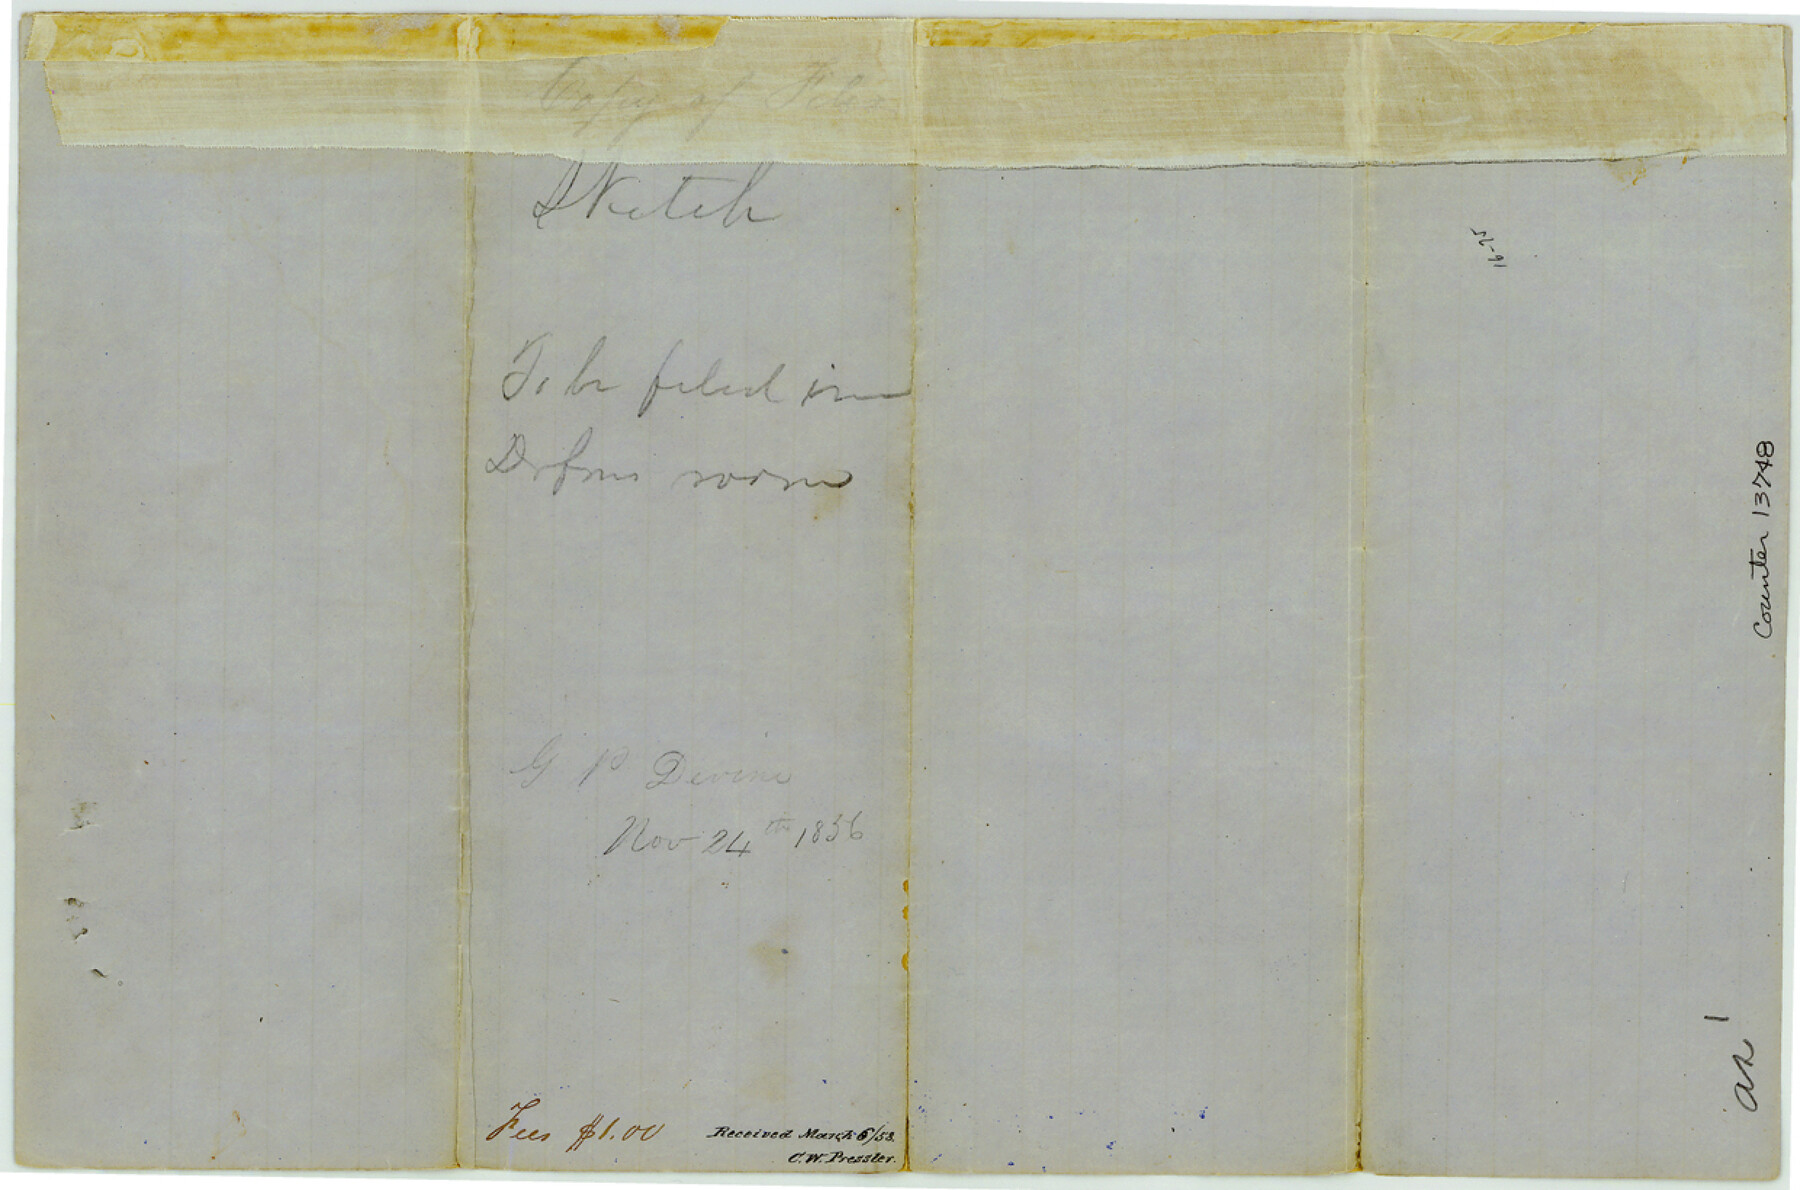 Copy of Files
Sketch
To be filed in
Drfmns room
G P Devine
Nov 24th 1856
Fees $1.00
Received March 6/58.
C.W. Pressler.
16-75
Counter 13748
1